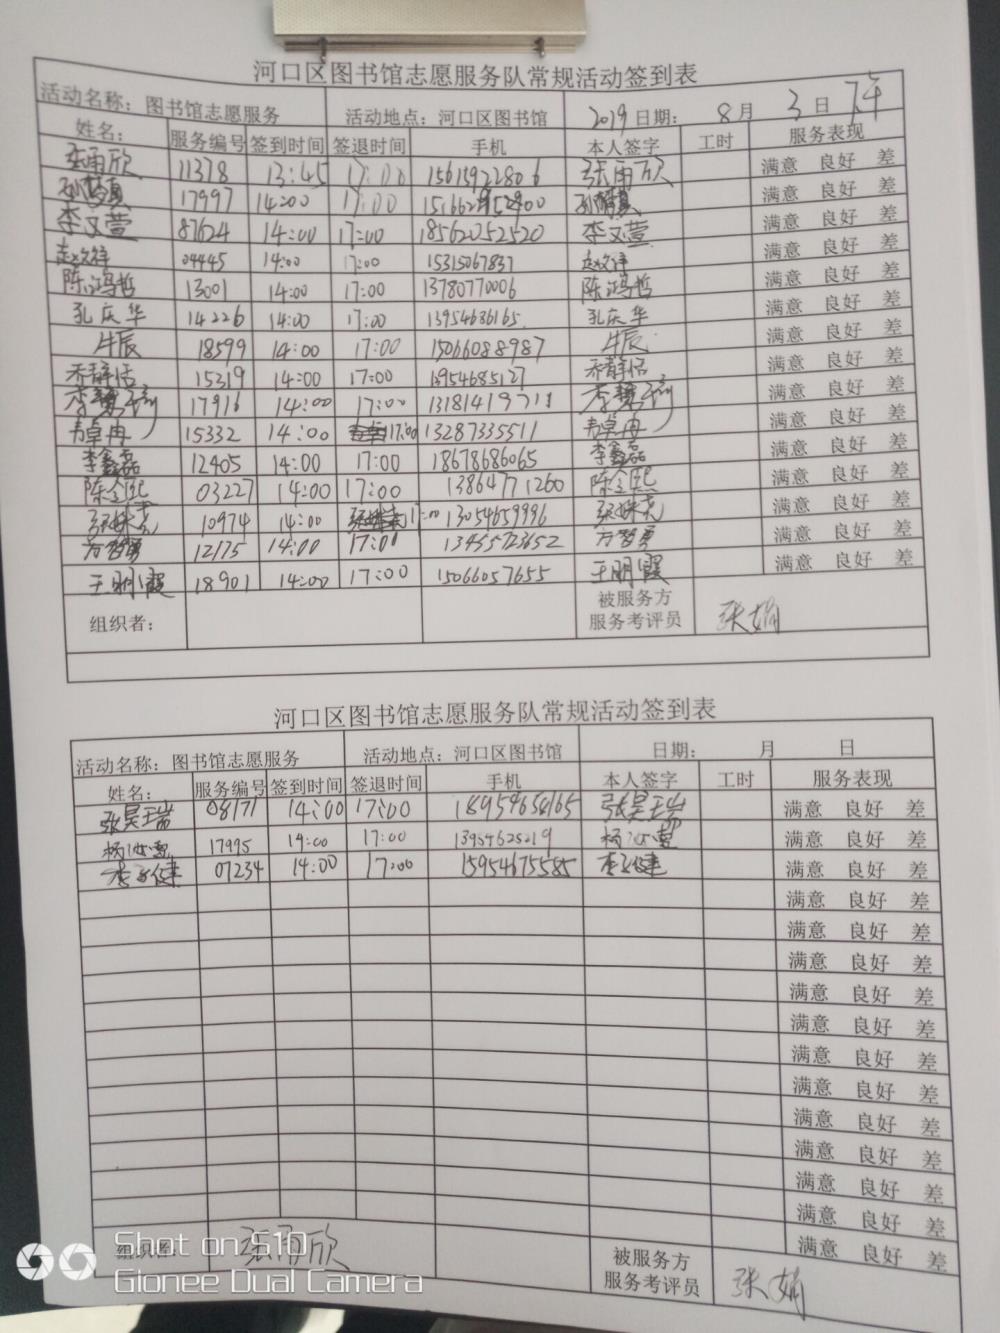 河口区图书馆志愿服务队常规活动签到表
活动名称：图书馆志愿服务 活动地点：河口区图书馆 2019日期： 8月 3日 下午
姓名： 服务编号 签到时间 签退时间 手机 本人签字 工时 服务表现
张雨欣 11378 13:45 17:00 15615972806 张雨欣 满意 良好 差
17997 14:00 17:00 满意 良好 差
李文萱 87624 14:00 17:00 18562052520 李文萱 满意 良好 差
赵文祥 04445 14:00 17:00 15315067837 赵文祥 满意 良好 差
陈鸿哲 13001 14:00 17:00 13780770006 陈鸿哲 满意 良好 差
孔庆华 14226 14:00 17:00 15954636165 孔庆华 满意 良好 差
牛辰 18599 14:00 17:00 15066088987 牛辰 满意 良好 差
乔静恬 15319 14:00 17:00 13954685127 乔静恬 满意 良好 差
17916 14:00 17:00 13181419711 满意 良好 差
韦卓冉 15332 14:00 17:00 13287335511 韦卓冉 满意 良好 差
李鑫磊 12405 14:00 17:00 18678686065 李鑫磊 满意 良好 差
陈金熙 03227 14:00 17:00 13864771260 陈金熙 满意 良好 差
10974 14:00 17:00 13054659996 满意 良好 差
方智勇 12175 14:00 17:00 13455723652 方智勇 满意 良好 差
王明霞 18901 14:00 17:00 15066057655 王明霞 满意 良好 差
组织者： 被服务方 服务考评员 张娟
河口区图书馆志愿服务队常规活动签到表
活动名称：图书馆志愿服务 活动地点：河口区图书馆 日期： 月 日
姓名： 服务编号 签到时间 签退时间 手机 本人签字 工时 服务表现
张昊瑞 08171 14:00 17:00 18954656165 张昊瑞 满意 良好 差
杨沁雪 17995 14:00 17:00 13954625219 杨沁雪 满意 良好 差
李子健 07234 14:00 17:00 15954675585 李子健 满意 良好 差
满意 良好 差
满意 良好 差
满意 良好 差
满意 良好 差
满意 良好 差
满意 良好 差
满意 良好 差
满意 良好 差
满意 良好 差
满意 良好 差
满意 良好 差
满意 良好 差
组织者： 张雨欣 被服务方 服务考评员 张娟
Shot on S10
Gionee Dual Camera